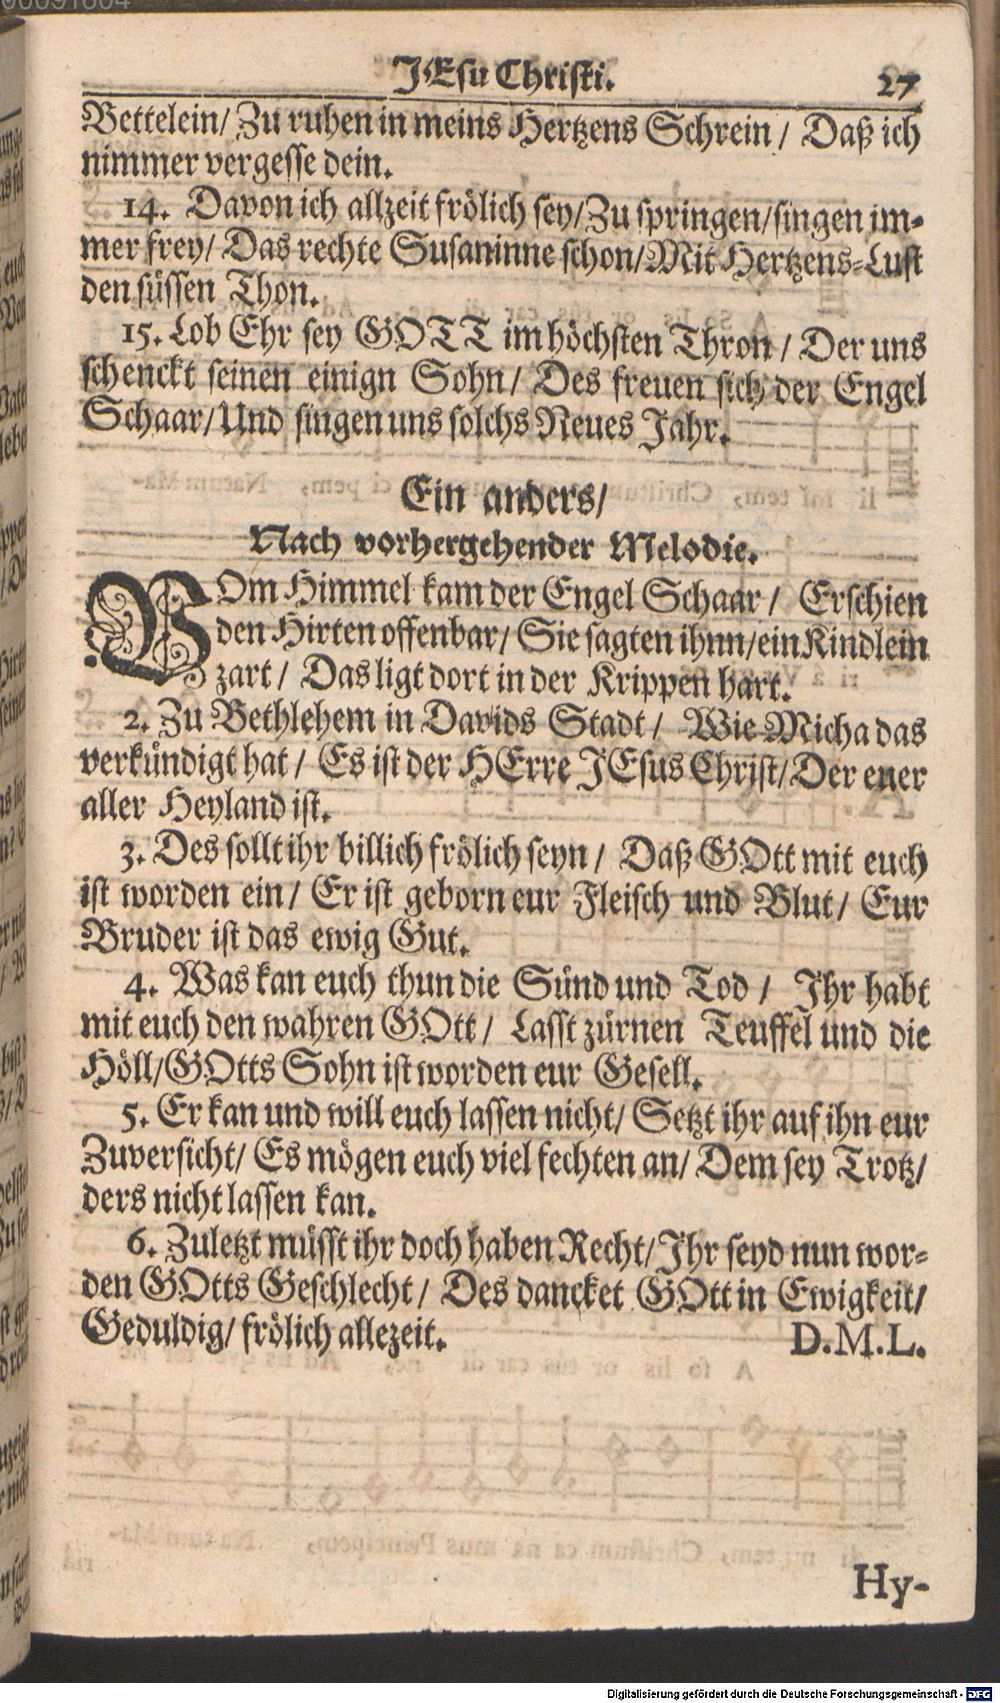 JEsu Christi. 27
Bettelein/ Zu ruhen in meins Hertzens Schrein / Daß ich
nimmer vergesse dein.
14. Davon ich allzeit frölich sey/Zu springen/singen im-
mer frey/ Das rechte Susaninne schon/Mit Hertzens-Lust
den süssen Thon.
15. Lob Ehr sey GOTT im höchsten Thron / Der uns
schenckt seinen einign Sohn/ Des freuen sich der Engel
Schaar/Und singen uns solchs Neues Jahr.
Ein anders/
Nach vorhergehender Melodie.
VOm Himmel kam der Engel Schaar / Erschien
den Hirten offenbar/ Sie sagten ihnn/ein Kindlein
zart / Das ligt dort in der Krippen hart.
2. Zu Bethlehem in Davids Stadt / Wie Micha das
verkündigt hat / Es ist der HErre JEsus Christ/Der euer
aller Heyland ist.
3. Des sollt ihr billich frölich seyn / Daß GOtt mit euch
ist worden ein/ Er ist geborn eur Fleisch und Blut/ Eur
Bruder ist das ewig Gut.
4. Was kan euch thun die Sünd und Tod / Ihr habt
mit euch den wahren GOtt / Lasst zürnen Teuffel und die
Höll/GOtts Sohn ist worden eur Gesell.
5. Er kan und will euch lassen nicht/ Setzt ihr auf ihn eur
Zuversicht/ Es mögen euch viel fechten an/ Dem sey Trotz/
ders nicht lassen kan.
6. Zuletzt müsst ihr doch haben Recht/Ihr seyd nun wor-
den GOtts Geschlecht / Des dancket GOtt in Ewigkeit/
Geduldig/ frölich allezeit. D.M.L.
Hy-
Digitalisierung gefördert durch die Deutsche Forschungsgemeinschaft - DFG